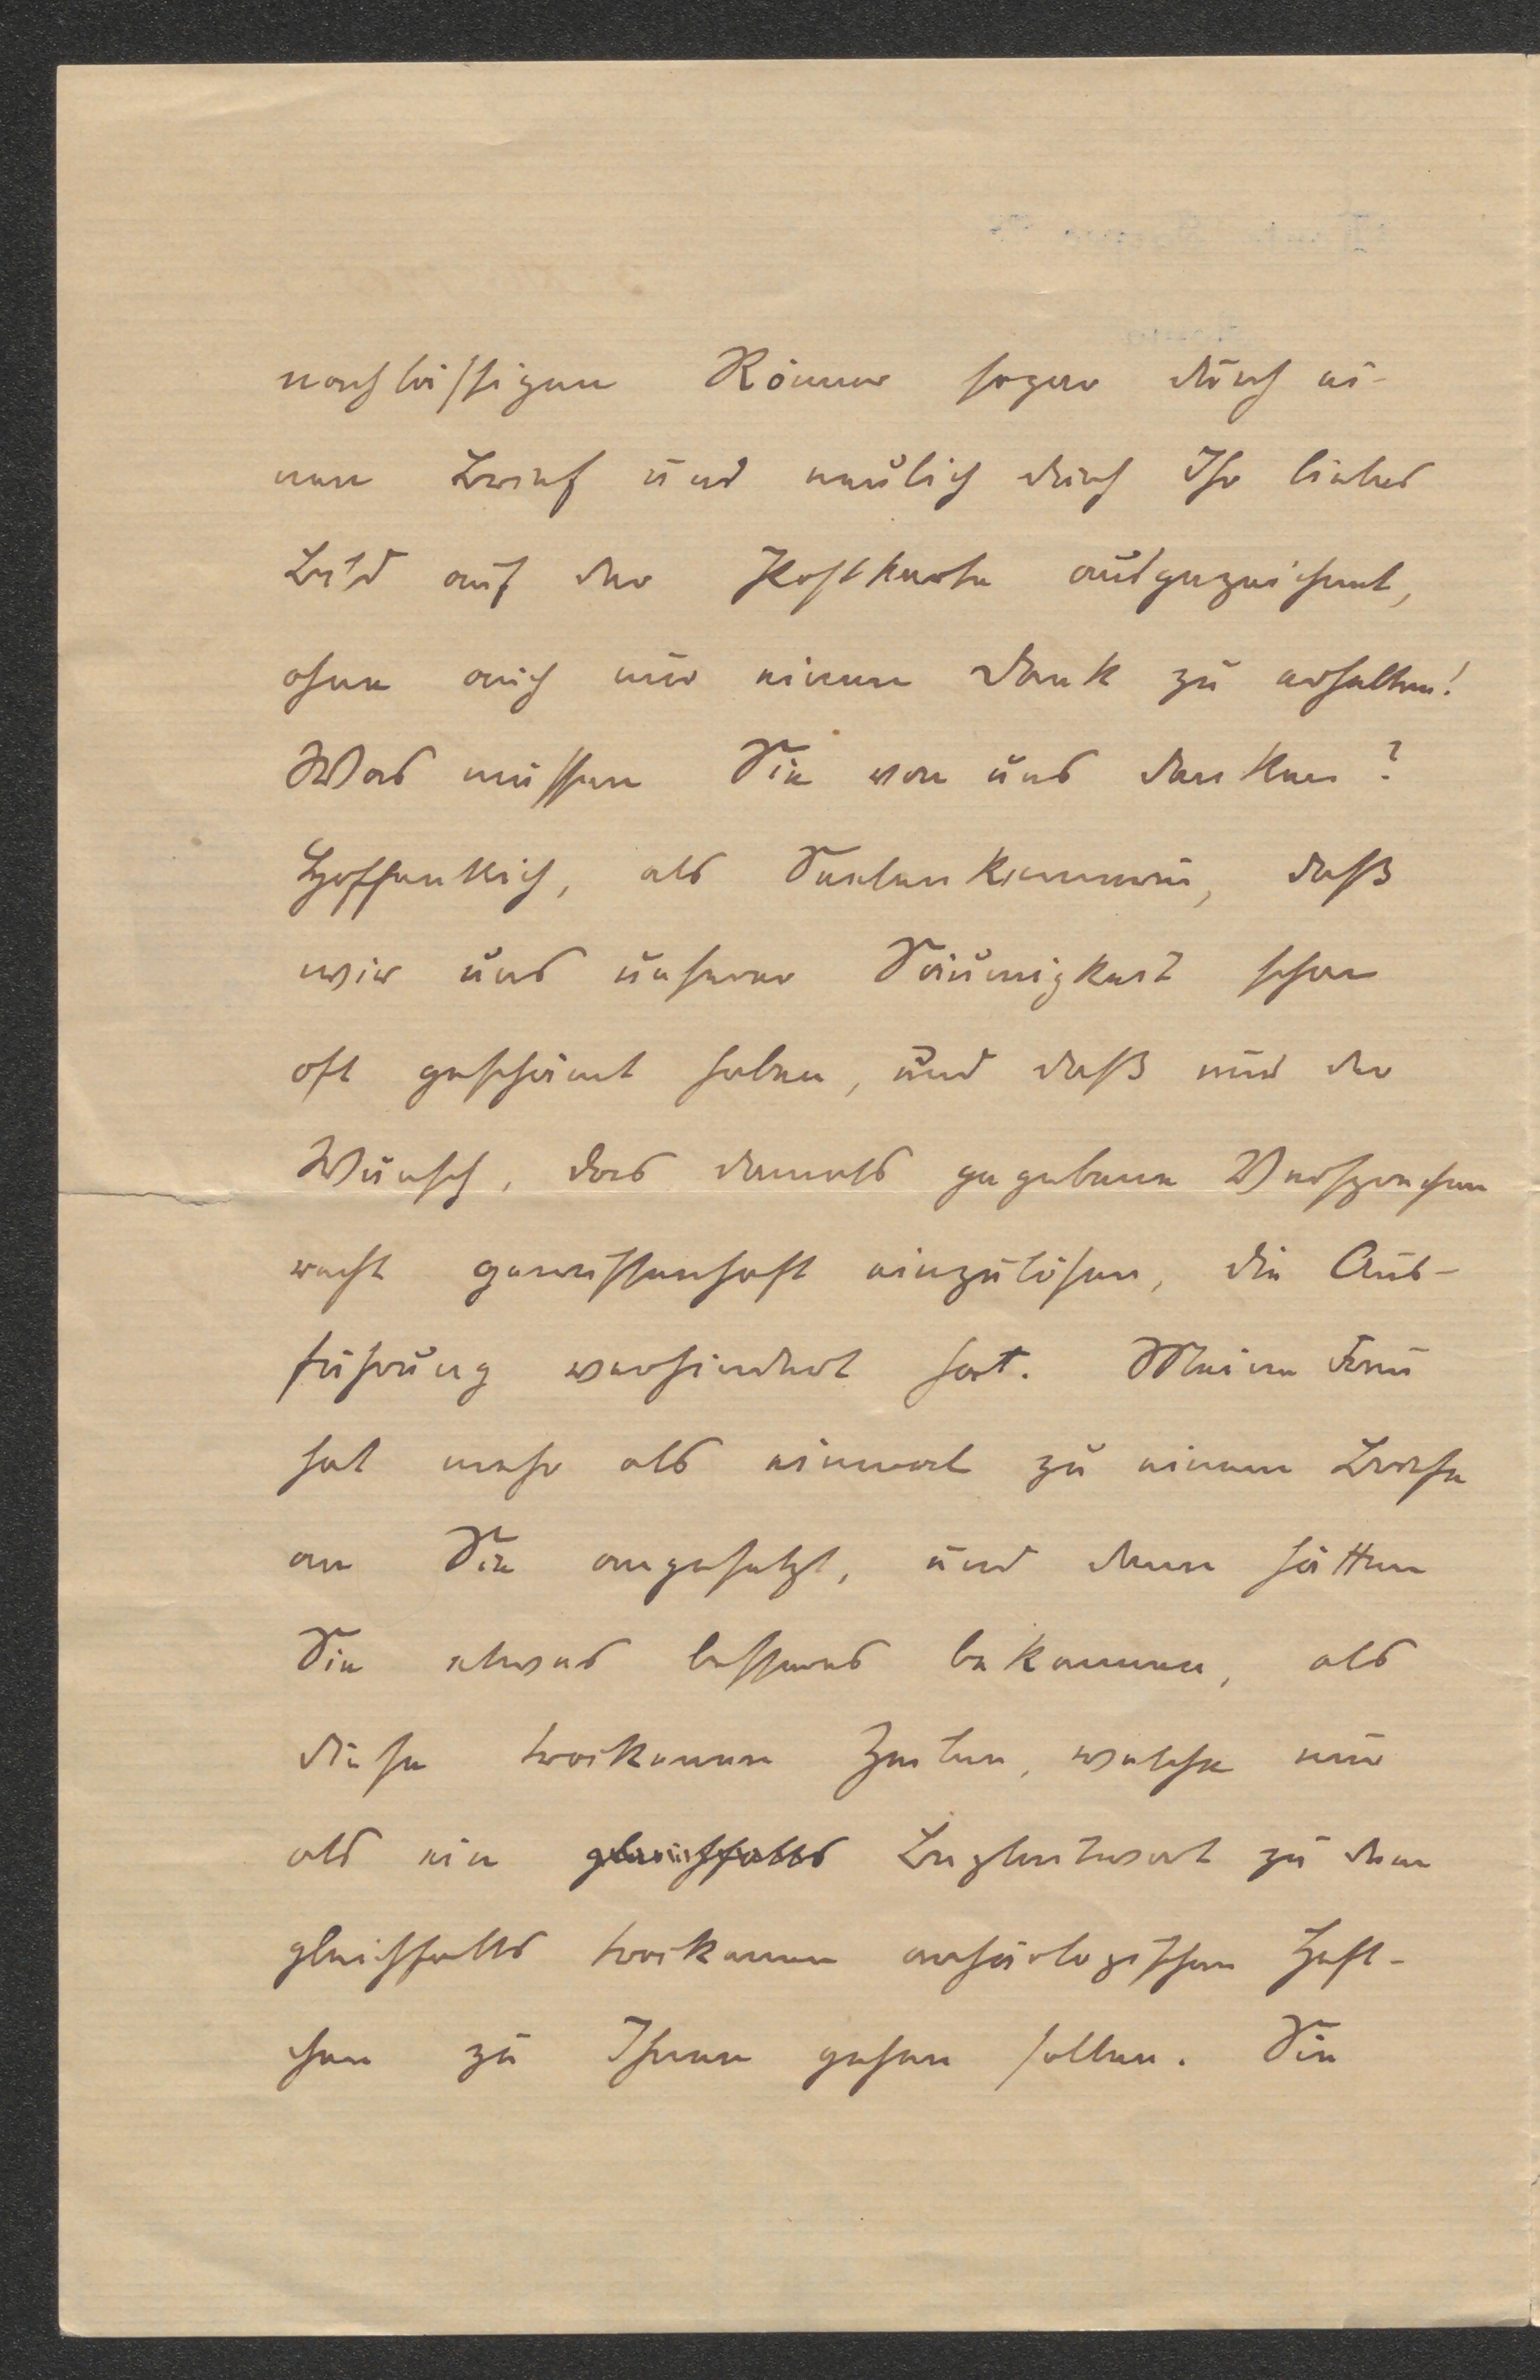 nachlässigen Römer sogar durch ei-
nen Brief und neulich durch Ihr liebes
Bild auf der Postkarte ausgezeichnet,
ohne auch nur einen Dank zu erhalten!
Was müssen Sie von uns denken?
Hoffentlich, als Seelenkennerin, daß
wir uns unserer Säumigkeit schon
oft geschämt haben, und daß nur der
Wunsch, das damals gegebene Versprechen
recht gewissenhaft einzulösen, die Aus-
führung verhindert hat. Meine Frau
hat mehr als einmal zu einem Briefe
an Sie angesetzt, und dann hätten
Sie etwas besseres bekommen, als
diese trockenen Zeilen, welche nur
als ein gleichfalls Begleitwort zu dem
gleichfalls trockenen archäologischen Heft-
chen zu Ihnen gehen sollen. Sie